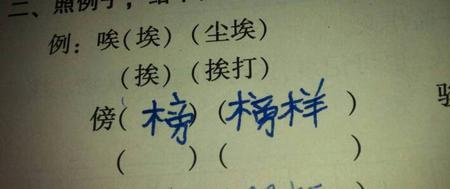 二、照例子，给
例：唉（埃）（尘埃）
（挨）（挨打）
傍（榜）（榜样）
（　　）（　　）